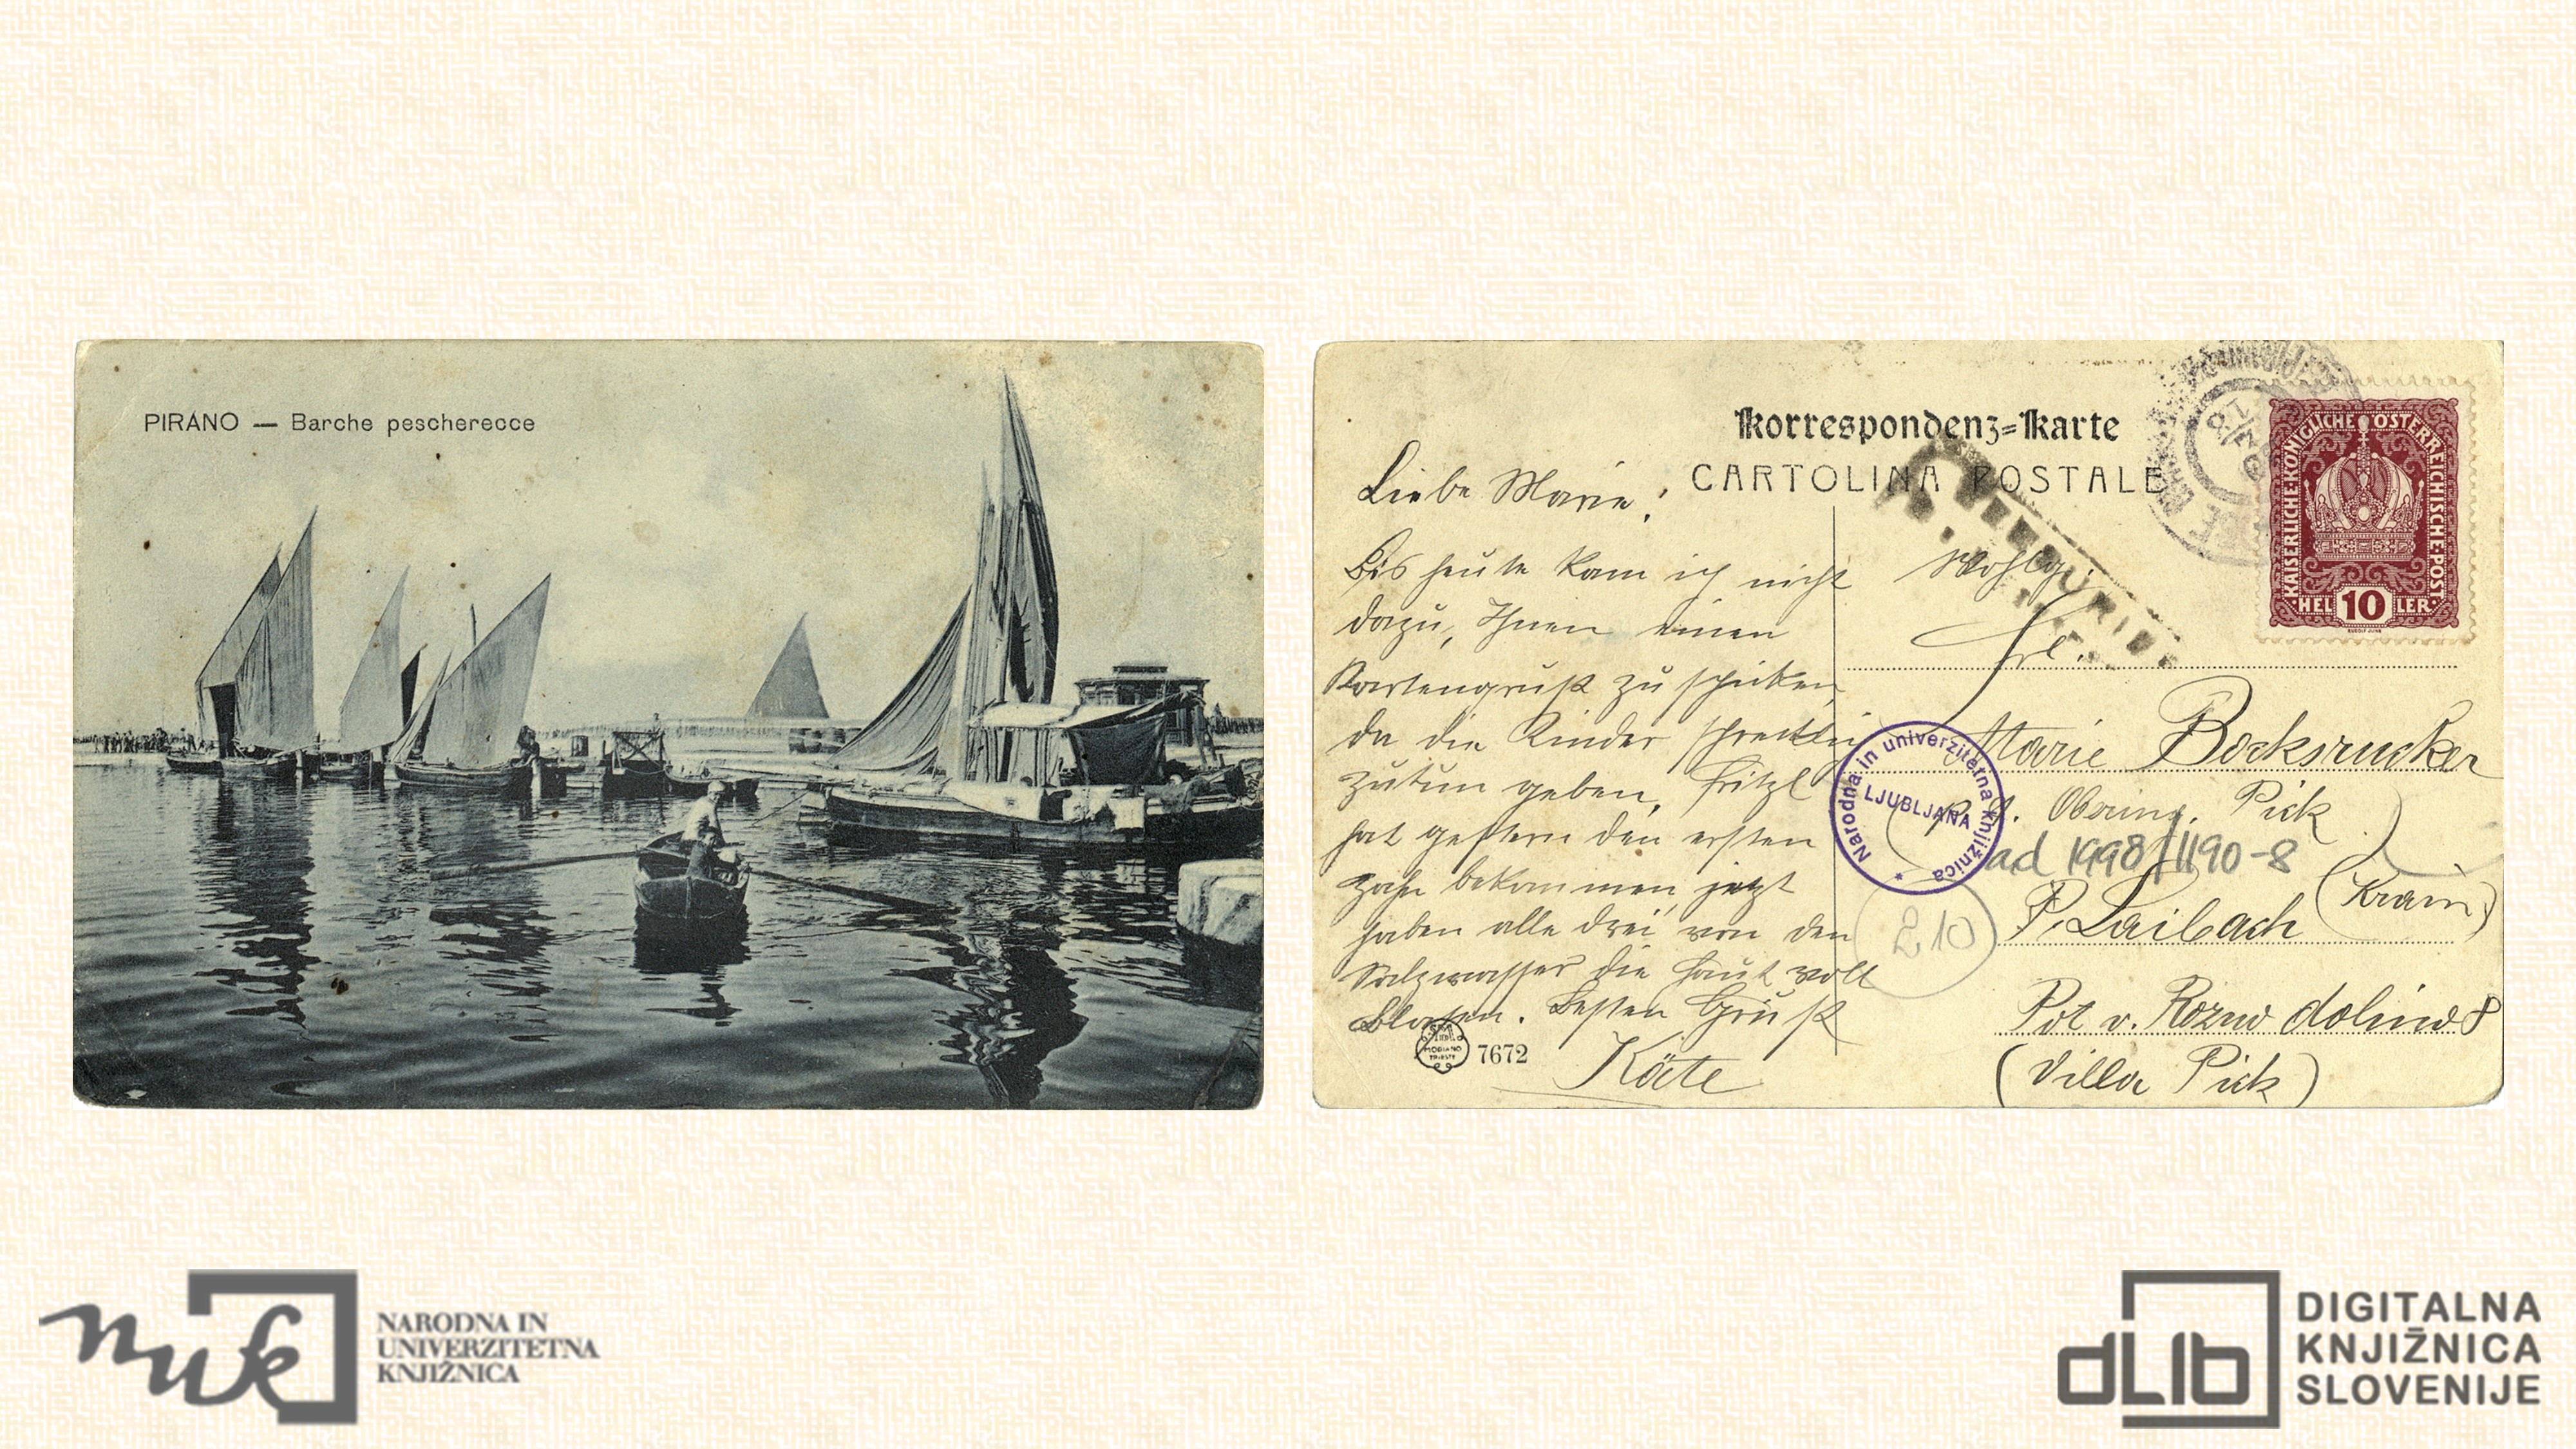 PIRANO — Barche pescherecce
Korrespondenz=Karte
CARTOLINA POSTALE
Liebe Marie!
Bis heute kam ich nicht
dazu, Ihnen einen
Kartengruß zu schicken,
da die Kinder schrecklich
zutun geben. Fritzl
hat gestern den ersten
Zahn bekommen, jetzt
haben alle drei von den
Salzwasser die Haut voll
Blasen. Besten Gruß
Käte
7672
KAISERLICHE KÖNIGLICHE ÖSTERREICHISCHE POST
HELLER 10
Wohlg.
Frl.
Marie Bocksrucker
Obering. Pick
ad 1998/1190-8
P. Laibach (Krain)
210
Pot v. Rozno dolino 8
(Villa Pick)
Narodna in univerzitetna knjižnica
LJUBLJANA
nuk
NARODNA IN
UNIVERZITETNA
KNJIŽNICA
dLIb
DIGITALNA
KNJIŽNICA
SLOVENIJE